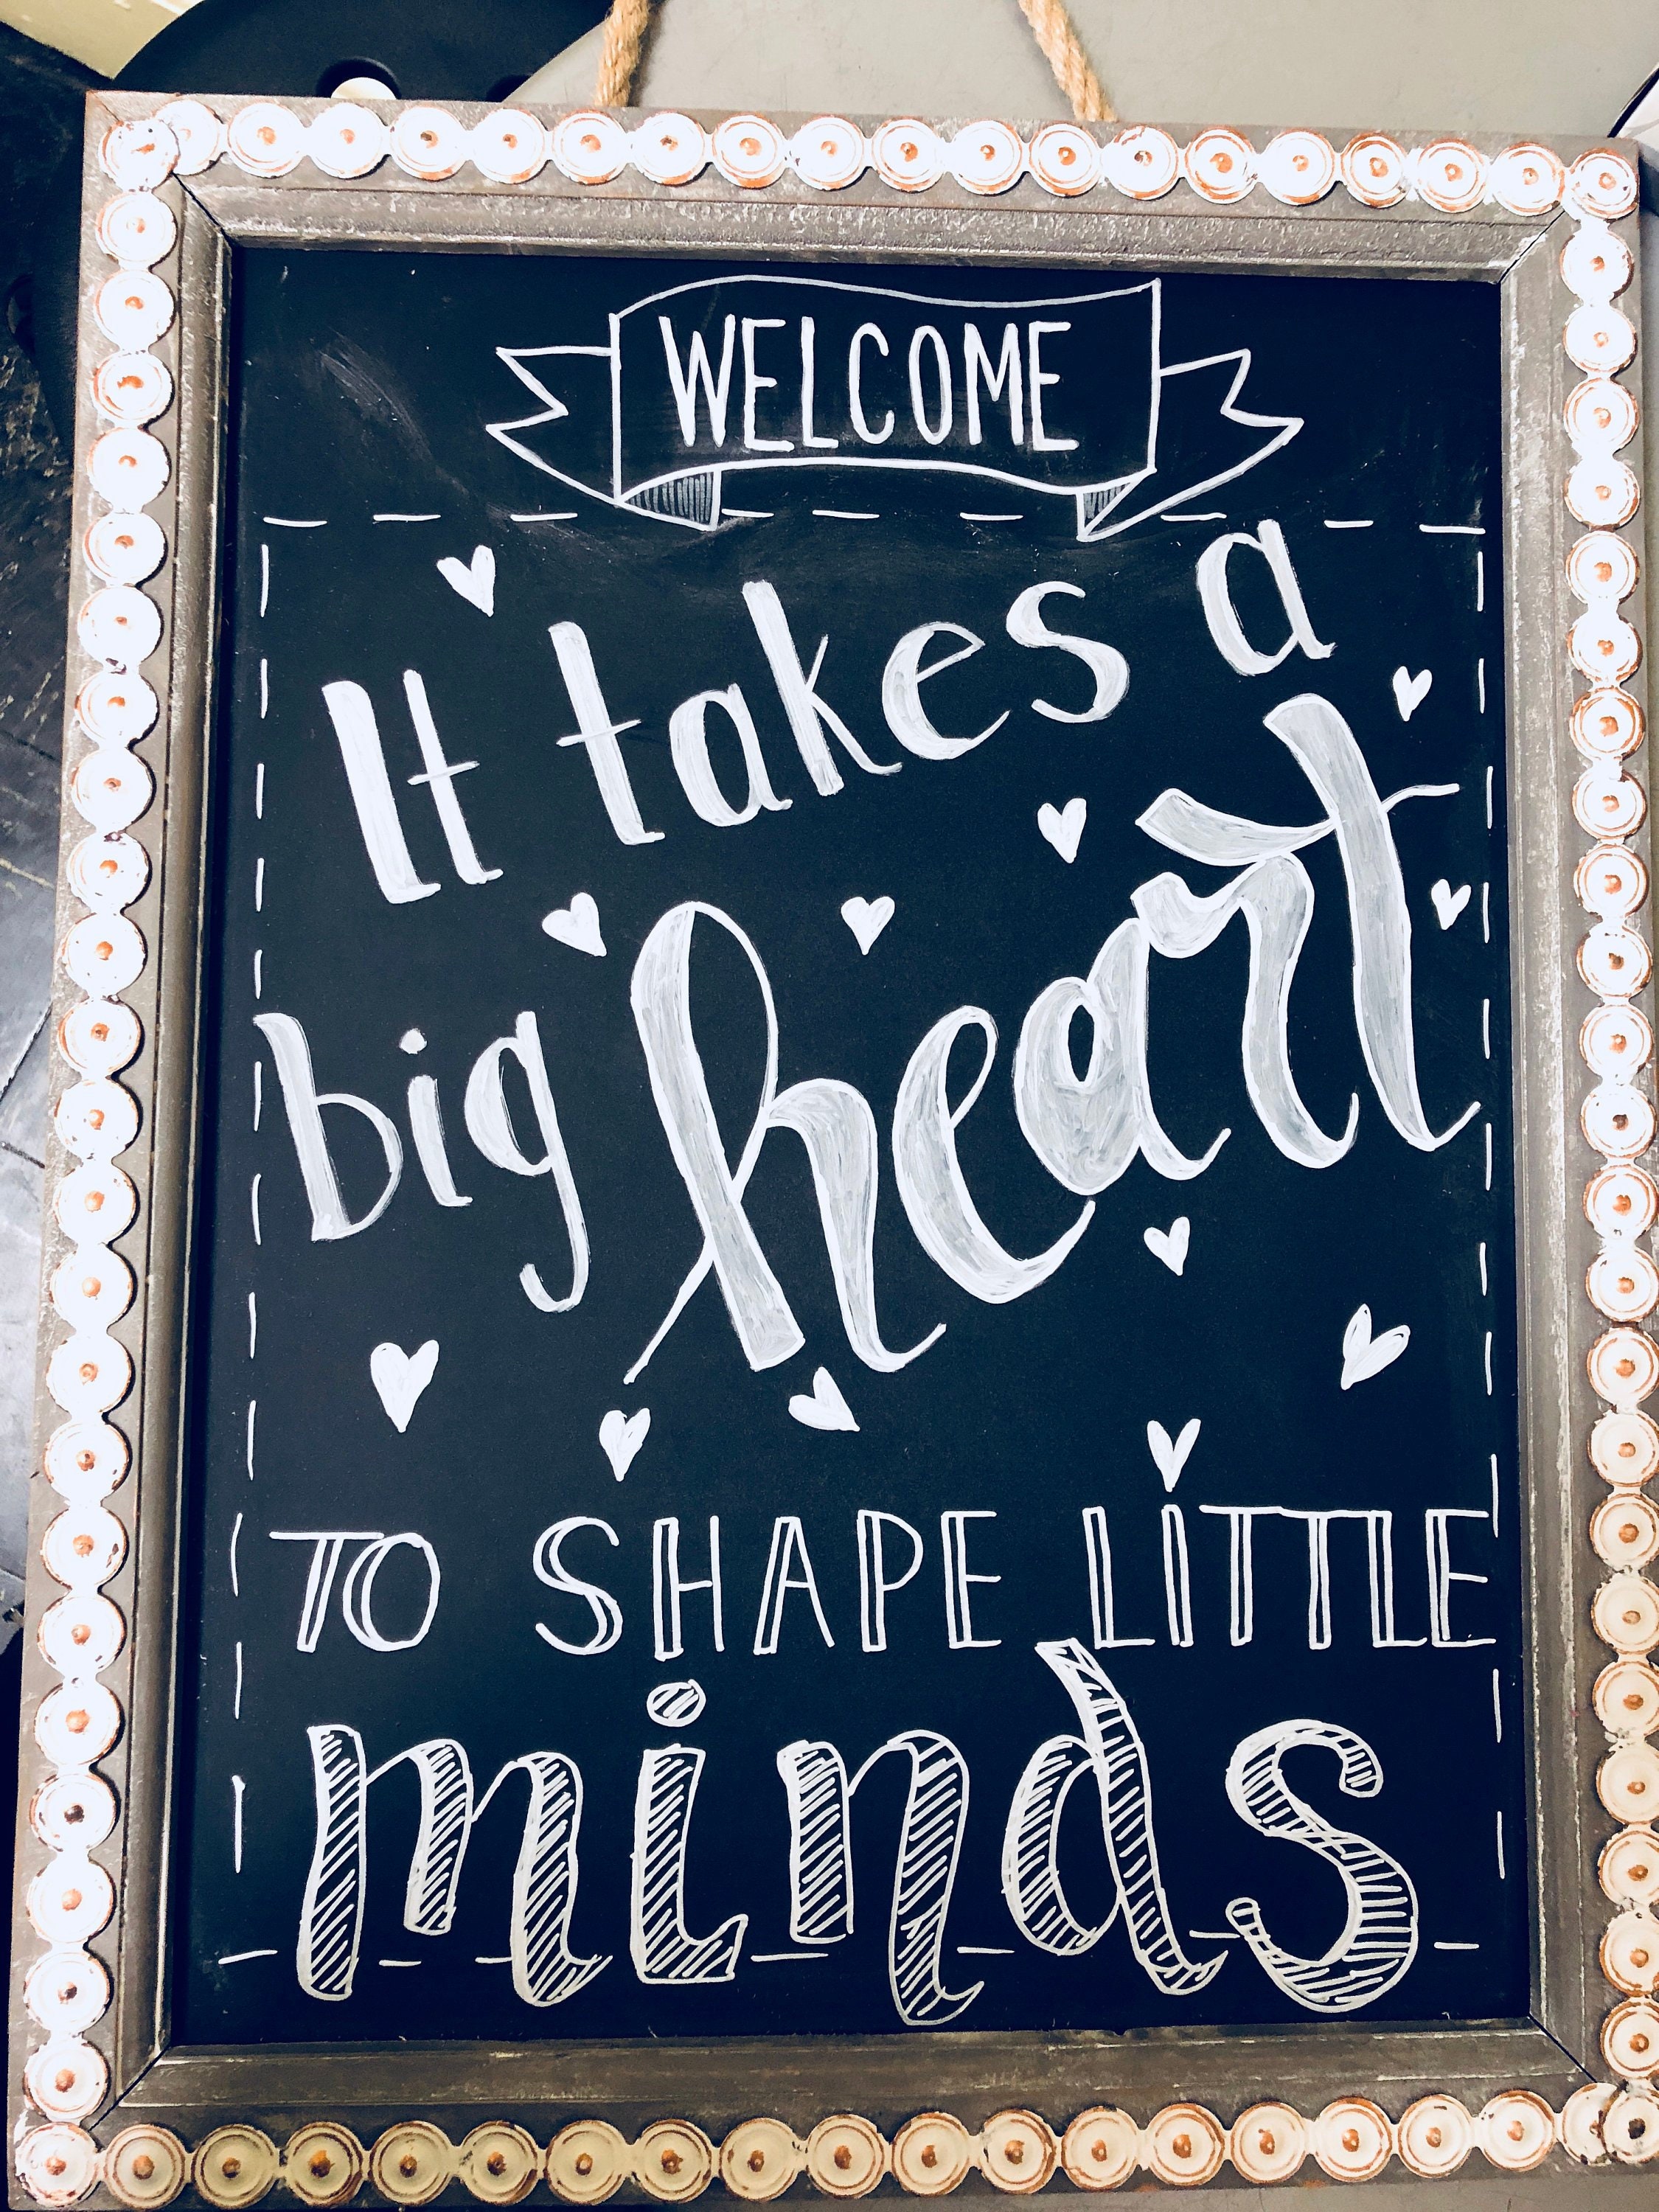 WELCOME
It takes a
big heart
TO SHAPE LiTTLE
minds